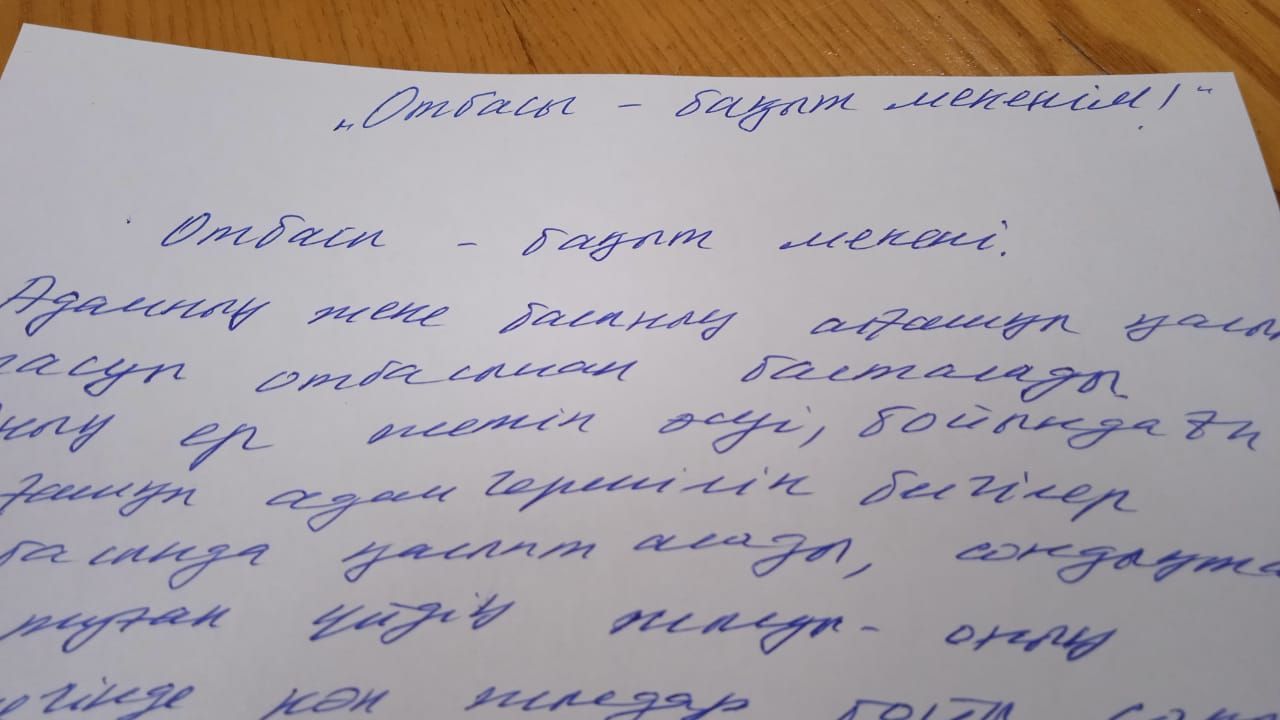 „Отбасы – бақыт мекенім!“
Отбасы – бақыт мекені.
Адамның жеке басының алғашқы қалып
тасуы отбасынан басталады
ның ер жетіп өсуі, бойындағы
ғашқы адамгершілік белгілер
басында қалыптасады, сондықта
туған үйдің жылуы – оның
егінде көп жылдар бойы сақ